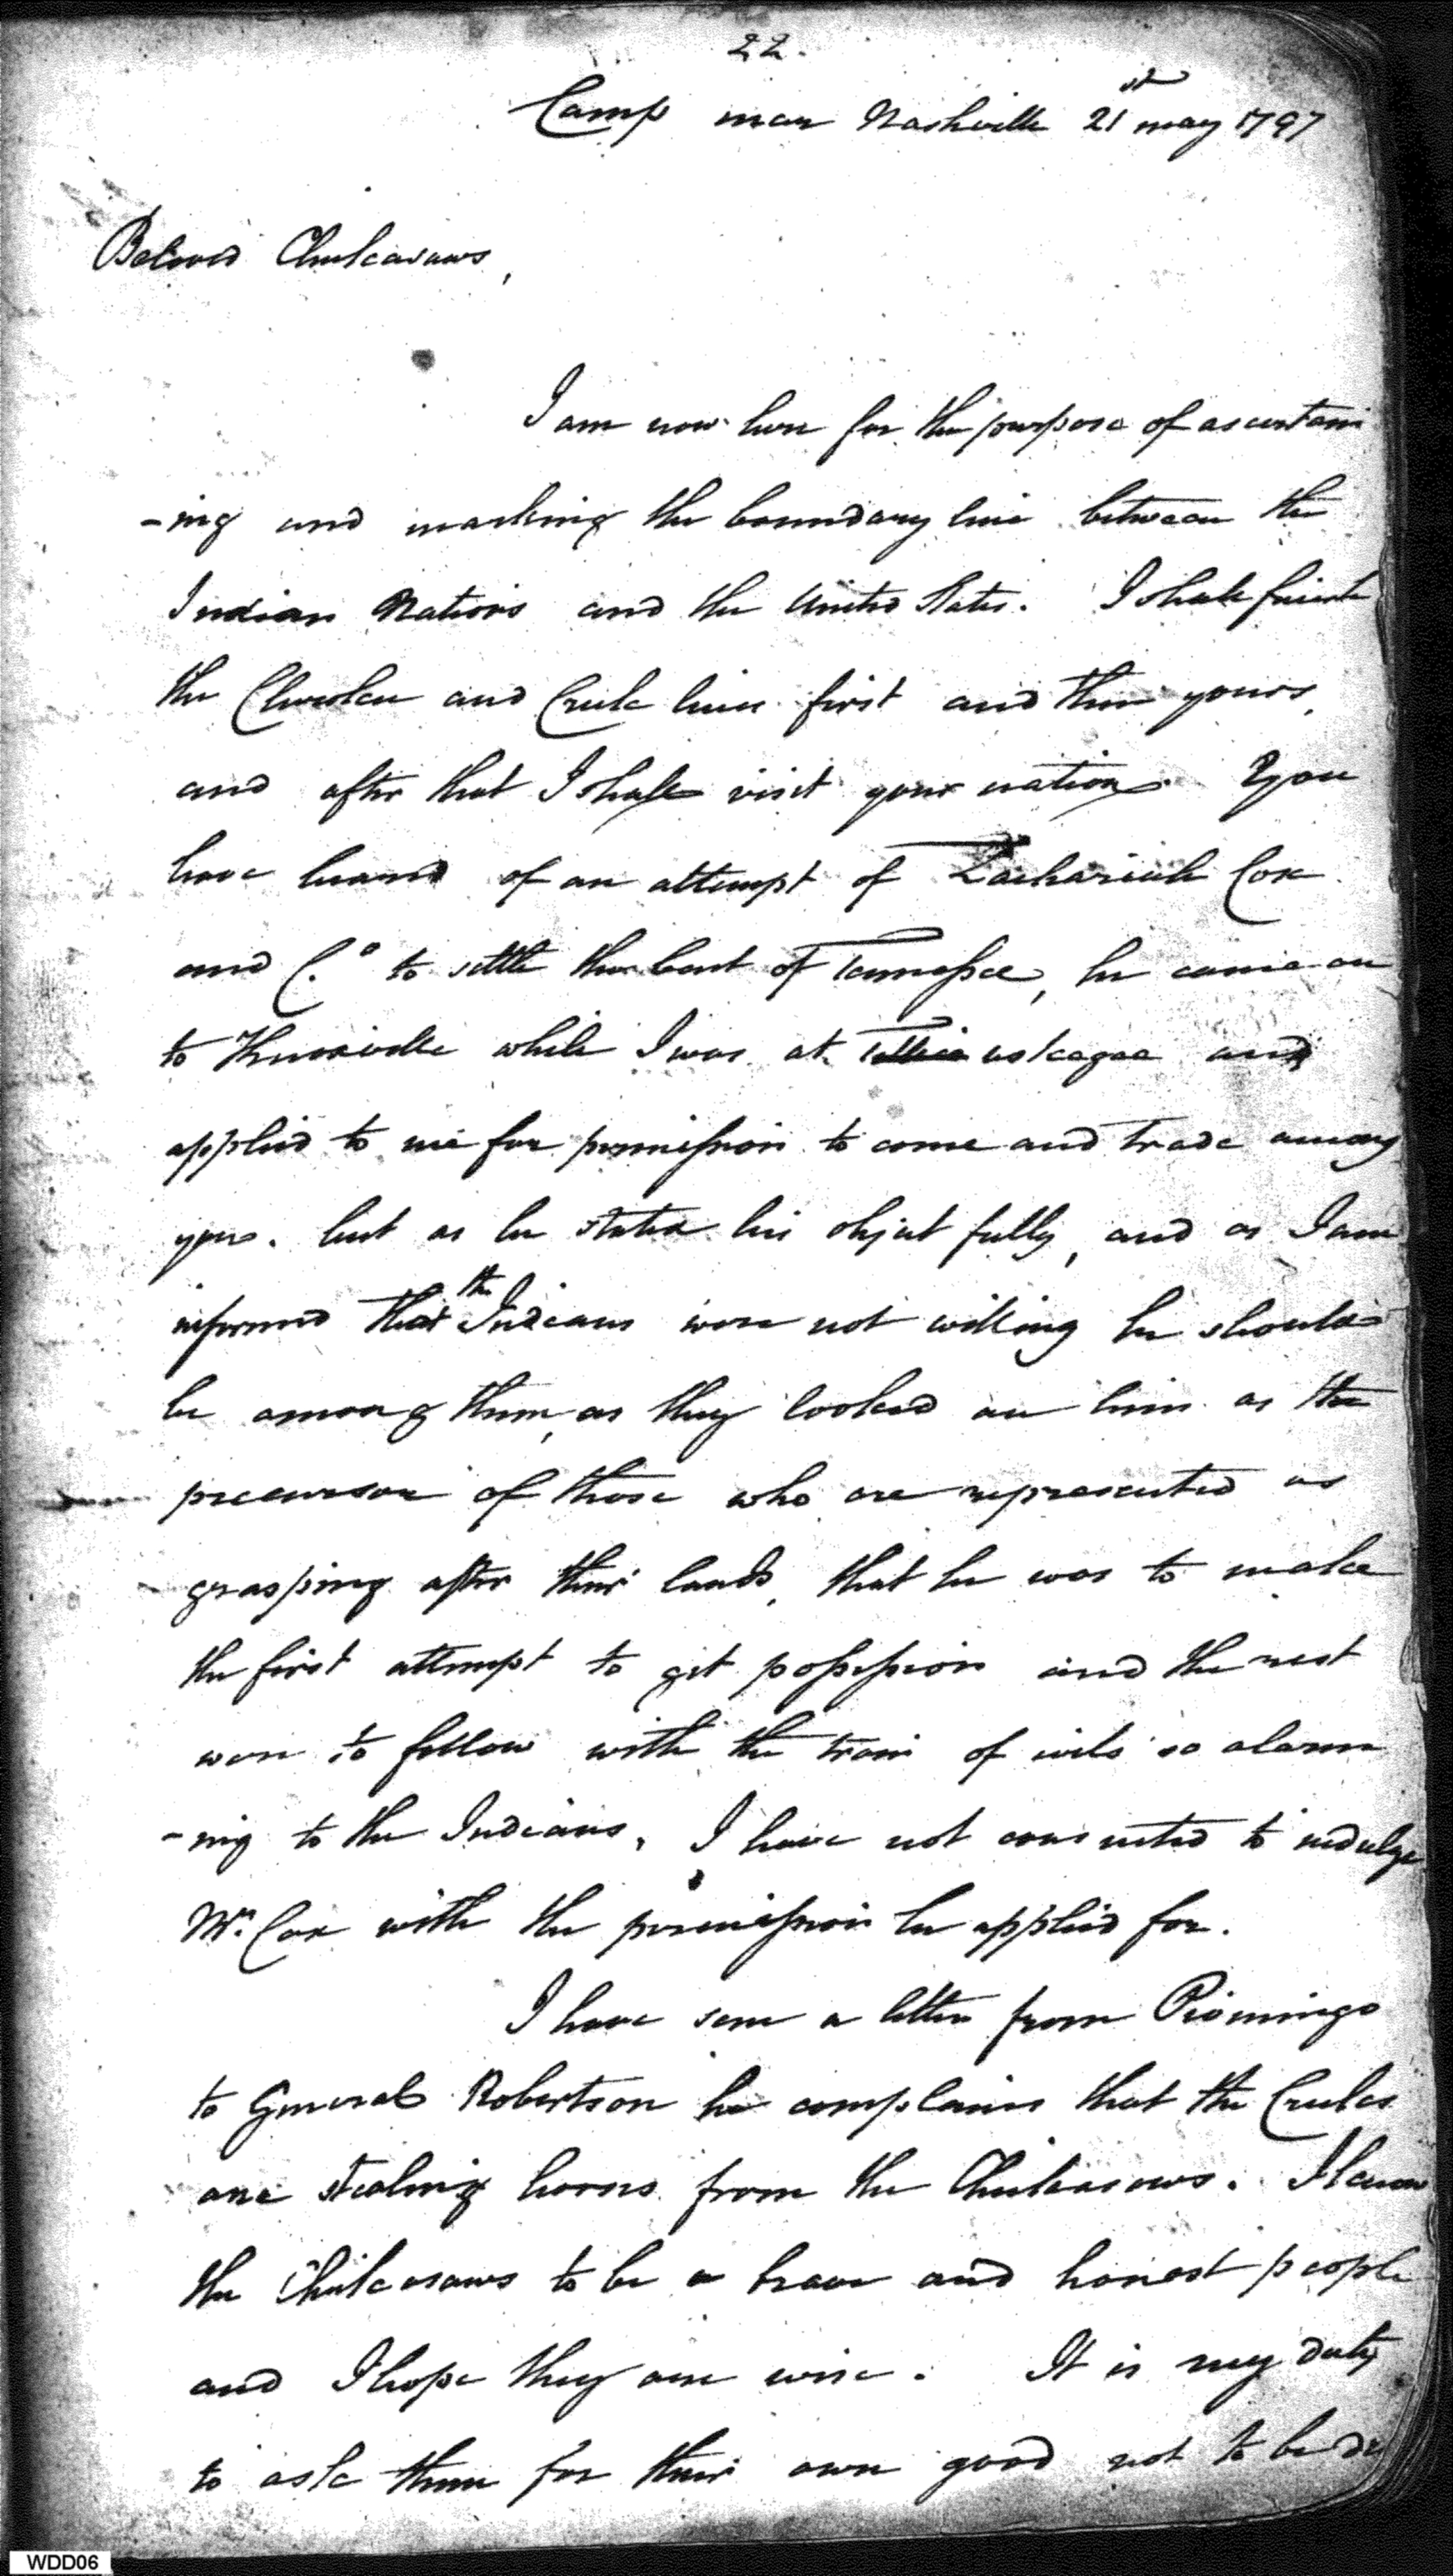 22.
Camp near Nashville 21st may 1797
Beloved Chickasaws,
I am now here for the purpose of ascertain
-ing and marking the boundary line between the
Indian Nations and the United States. I shall finish
the Cherokee and Creek line first and then yours,
and after that I shall visit your nation. You
have heard of an attempt of Zachariah Cox
and C.o to settle the bent of Tennessee, he came on
to Knoxville while I was at Tellico and
applied to me for permission to come and trade among
you. but as he stated his object fully, and as I am
informed that the Indians were not willing he should
be among them, as they looked on him as the
precursor of those who are represented as
grasping after their lands, that he was to make
the first attempt to git possession and the rest
were to follow with the train of evils so alarm
-ing to the Indians, I have not consented to indulge
Mr. Cox with the permission he applied for.
I have seen a letter from Piomingo
to General Robertson he complains that the Creeks
are stealing horses from the Chickasaws. I know
the Chickasaws to be a brave and honest people
and I hope they are wise. It is my duty
to ask them for their own good not to be de
WDD06